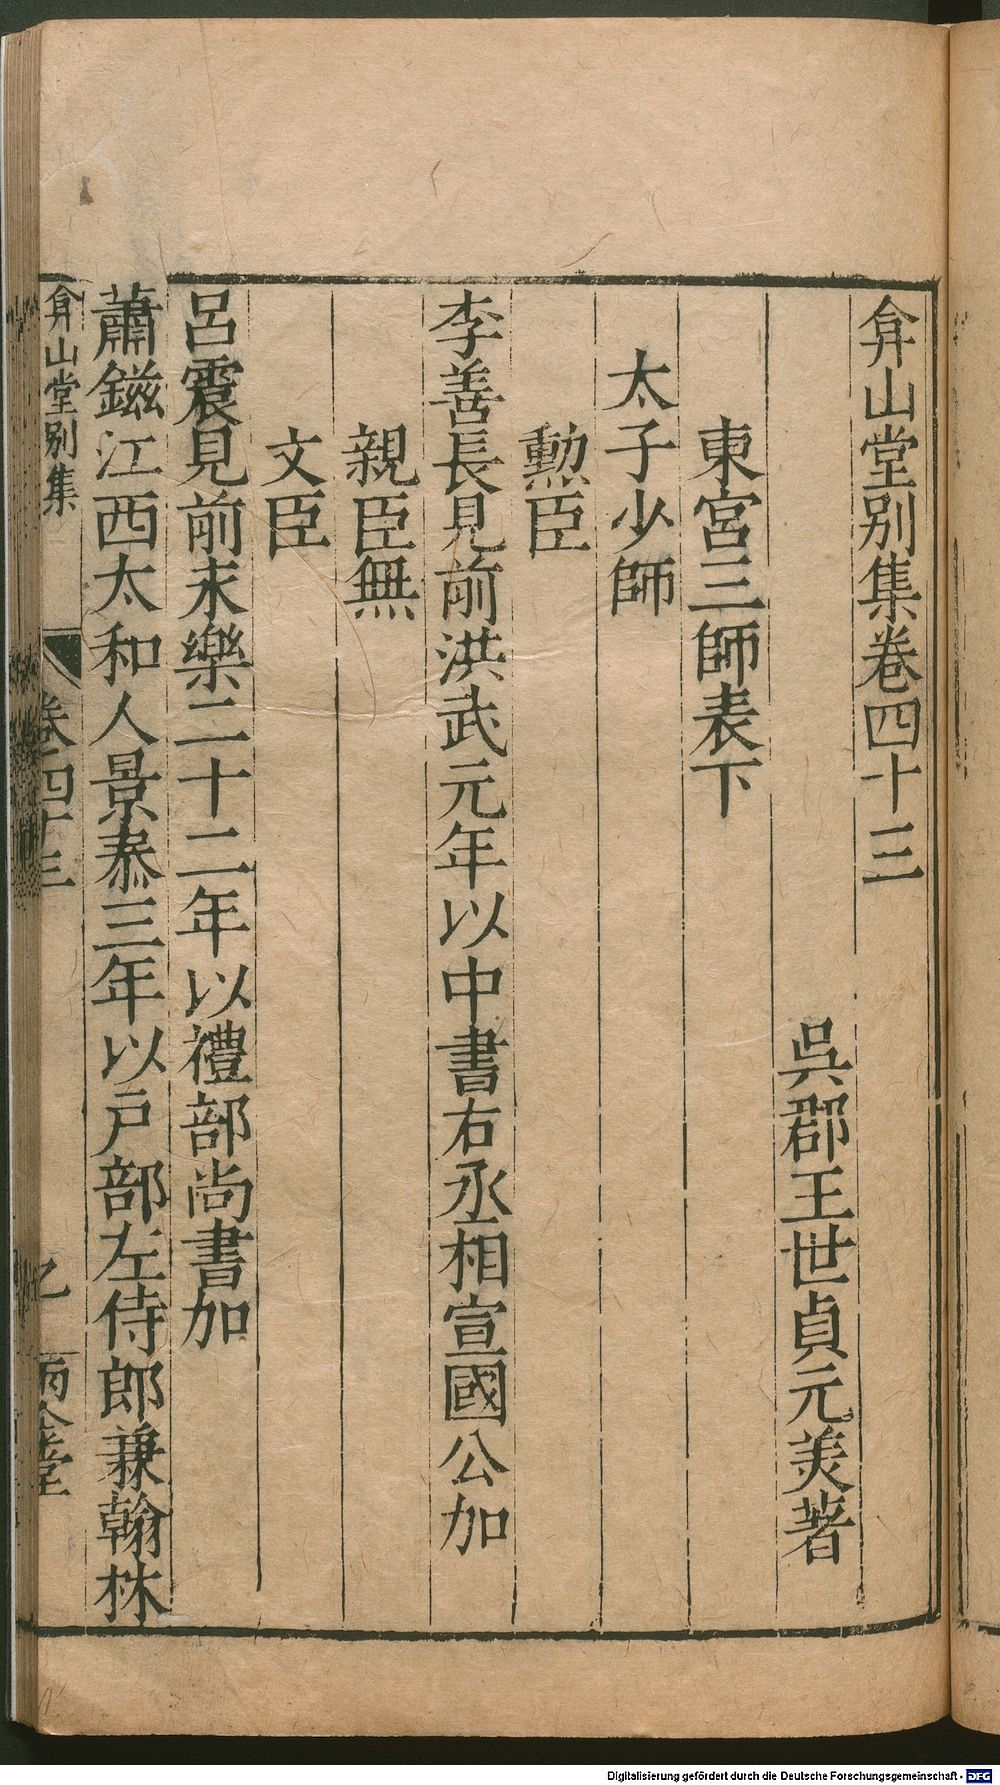 弇山堂別集卷四十三
吳郡王世貞元美著
東宮三師表下
太子少師
勳臣
李善長見前洪武元年以中書右丞相宣國公加
親臣無
文臣
呂震見前永樂二十二年以禮部尚書加
蕭鎡江西太和人景泰三年以戶部左侍郎兼翰林
弇山堂別集
卷四十三
乙
Digitalisierung gefördert durch die Deutsche Forschungsgemeinschaft - DFG